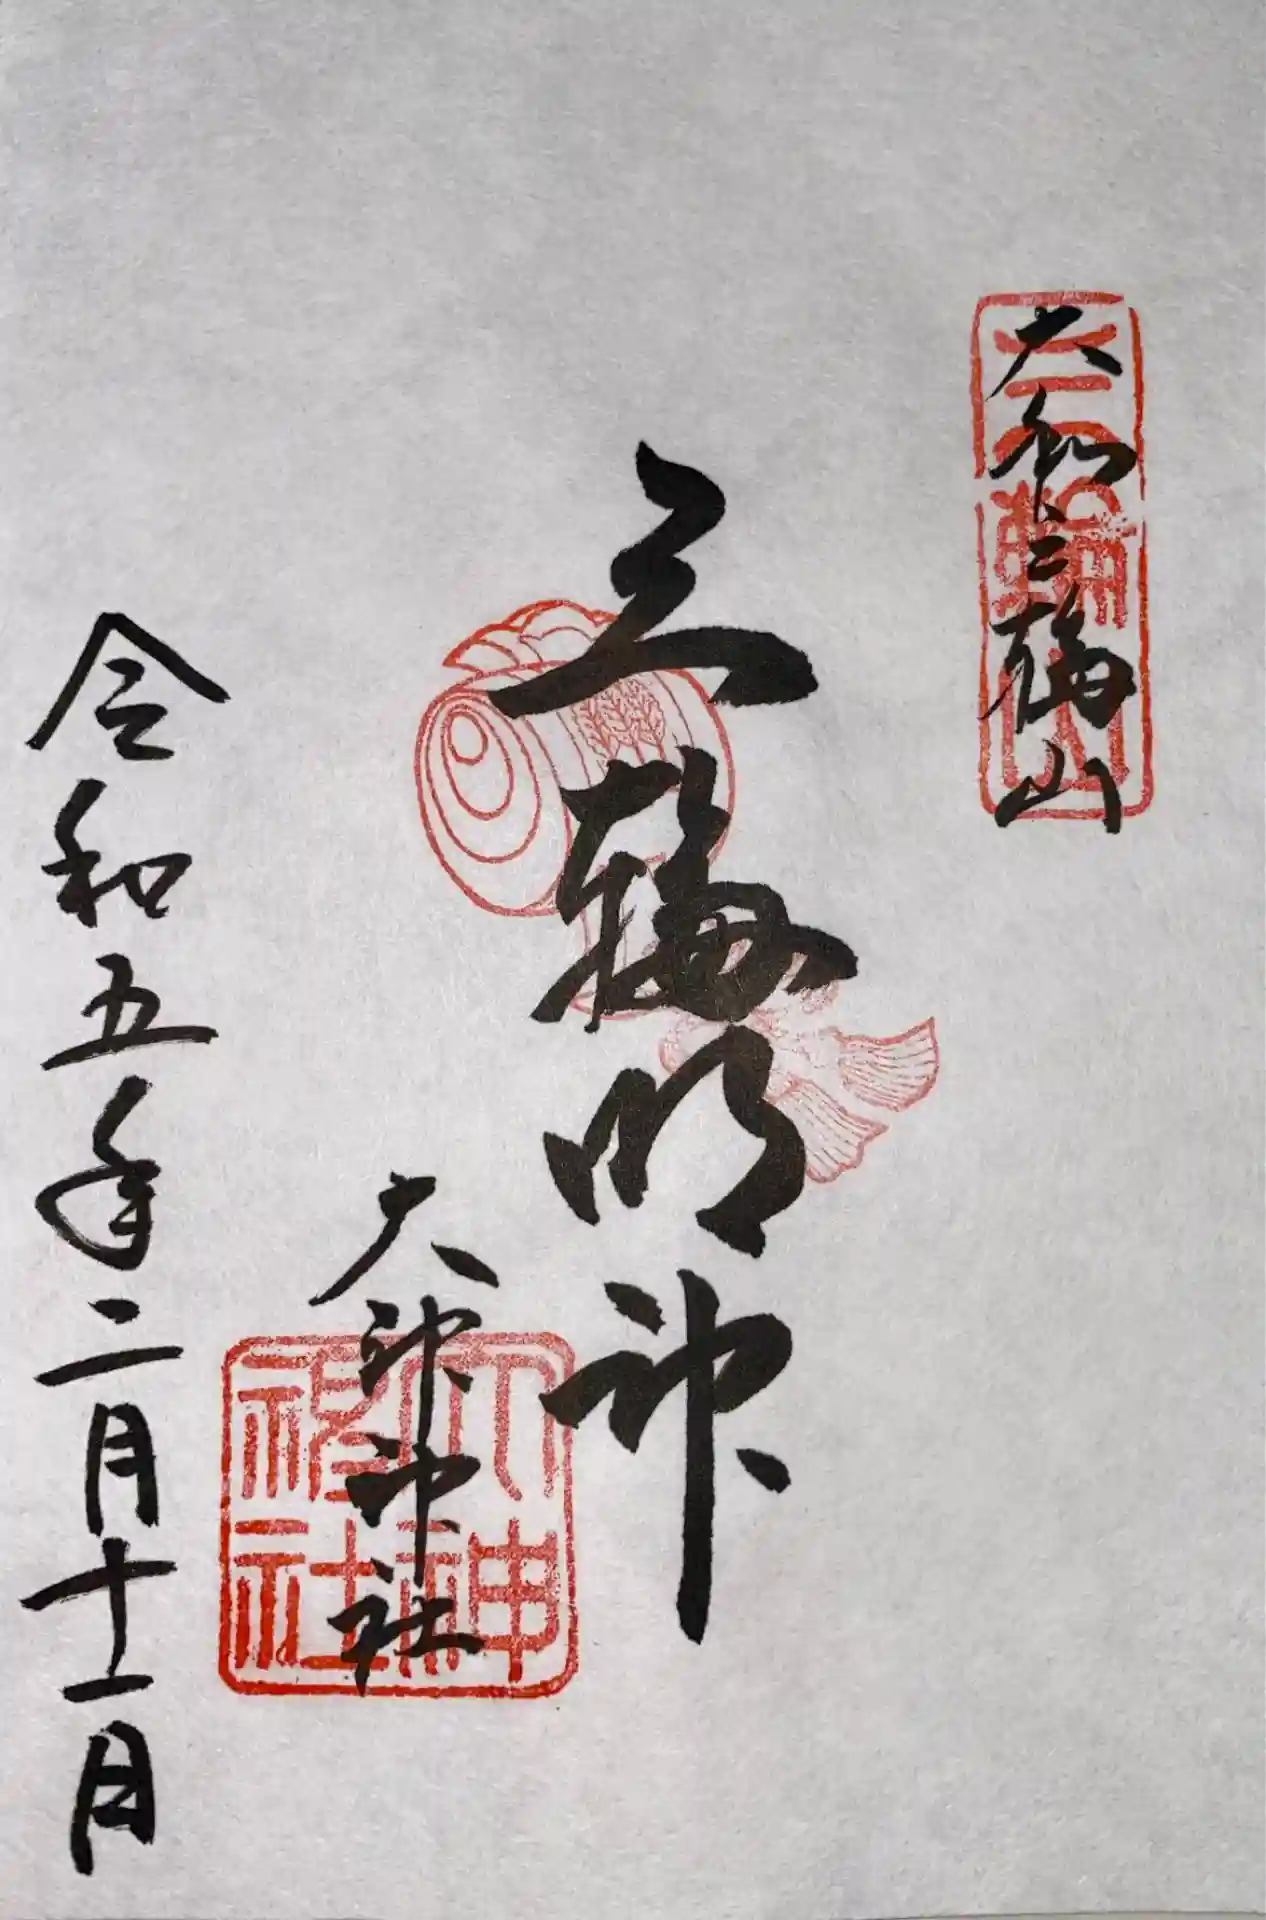 大和三輪山
三輪明神
大神神社
令和五年二月十一日
三輪山
大神神社